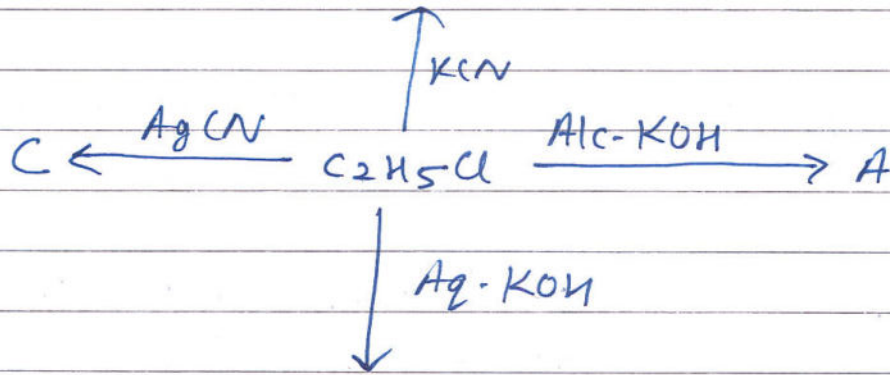 KCN
C AgCN C2H5Cl Alc-KOH A
Aq-KOH